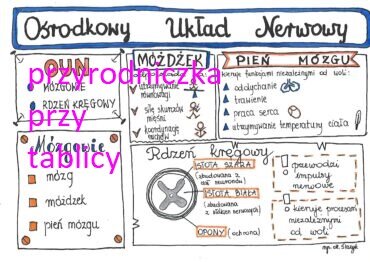 Ośrodkowy Układ Nerwowy
OUN
MÓZGOWIE
RDZEŃ KRĘGOWY
przyrodniczka
przy
tablicy
MÓŻDŻEK
utrzymywanie równowagi
siłę skurczów
mięśni
koordynację
ruchów
PIEŃ MÓZGU
kieruje funkcjami niezależnymi od woli:
oddychanie
trawienie
praca serca
utrzymywanie temperatury ciała
Mózgowie
mózg
móżdżek
pień mózgu
Rdzeń kręgowy
ISTOTA SZARA
(zbudowana z
ciał neuronów)
ISTOTA BIAŁA
(zbudowana
z włókien nerwowych)
OPONY (ochrona)
przewodzi
impulsy
nerwowe
kieruje procesami
niezależnymi
od woli